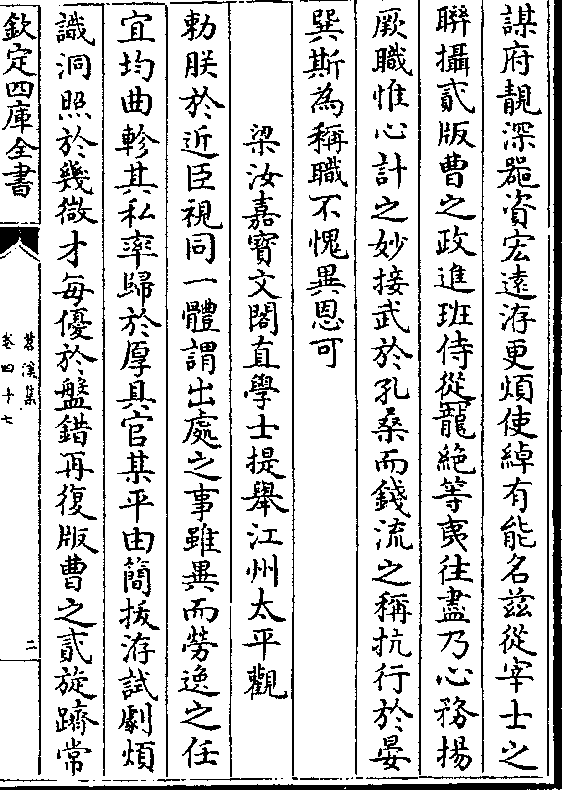 謀府靚深器資宏遠洊更煩使綽有能名兹從宰士之
聨攝貳版曹之政進班侍從寵絶等夷往盡乃心務揚
厥職惟心計之妙接武於孔桑而錢流之稱抗行於晏
㢲斯為稱職不愧異恩可
梁汝嘉寳文閣直學士提舉江州太平觀
勅朕於近臣視同一體謂出處之事雖異而勞逸之任
宜均曲軫其私率歸於厚具官某平由簡拔洊試劇煩
識洞照於幾微才每優於盤錯再復版曹之貳旋躋常
欽定四庫全書
苕溪集
卷四十七
二